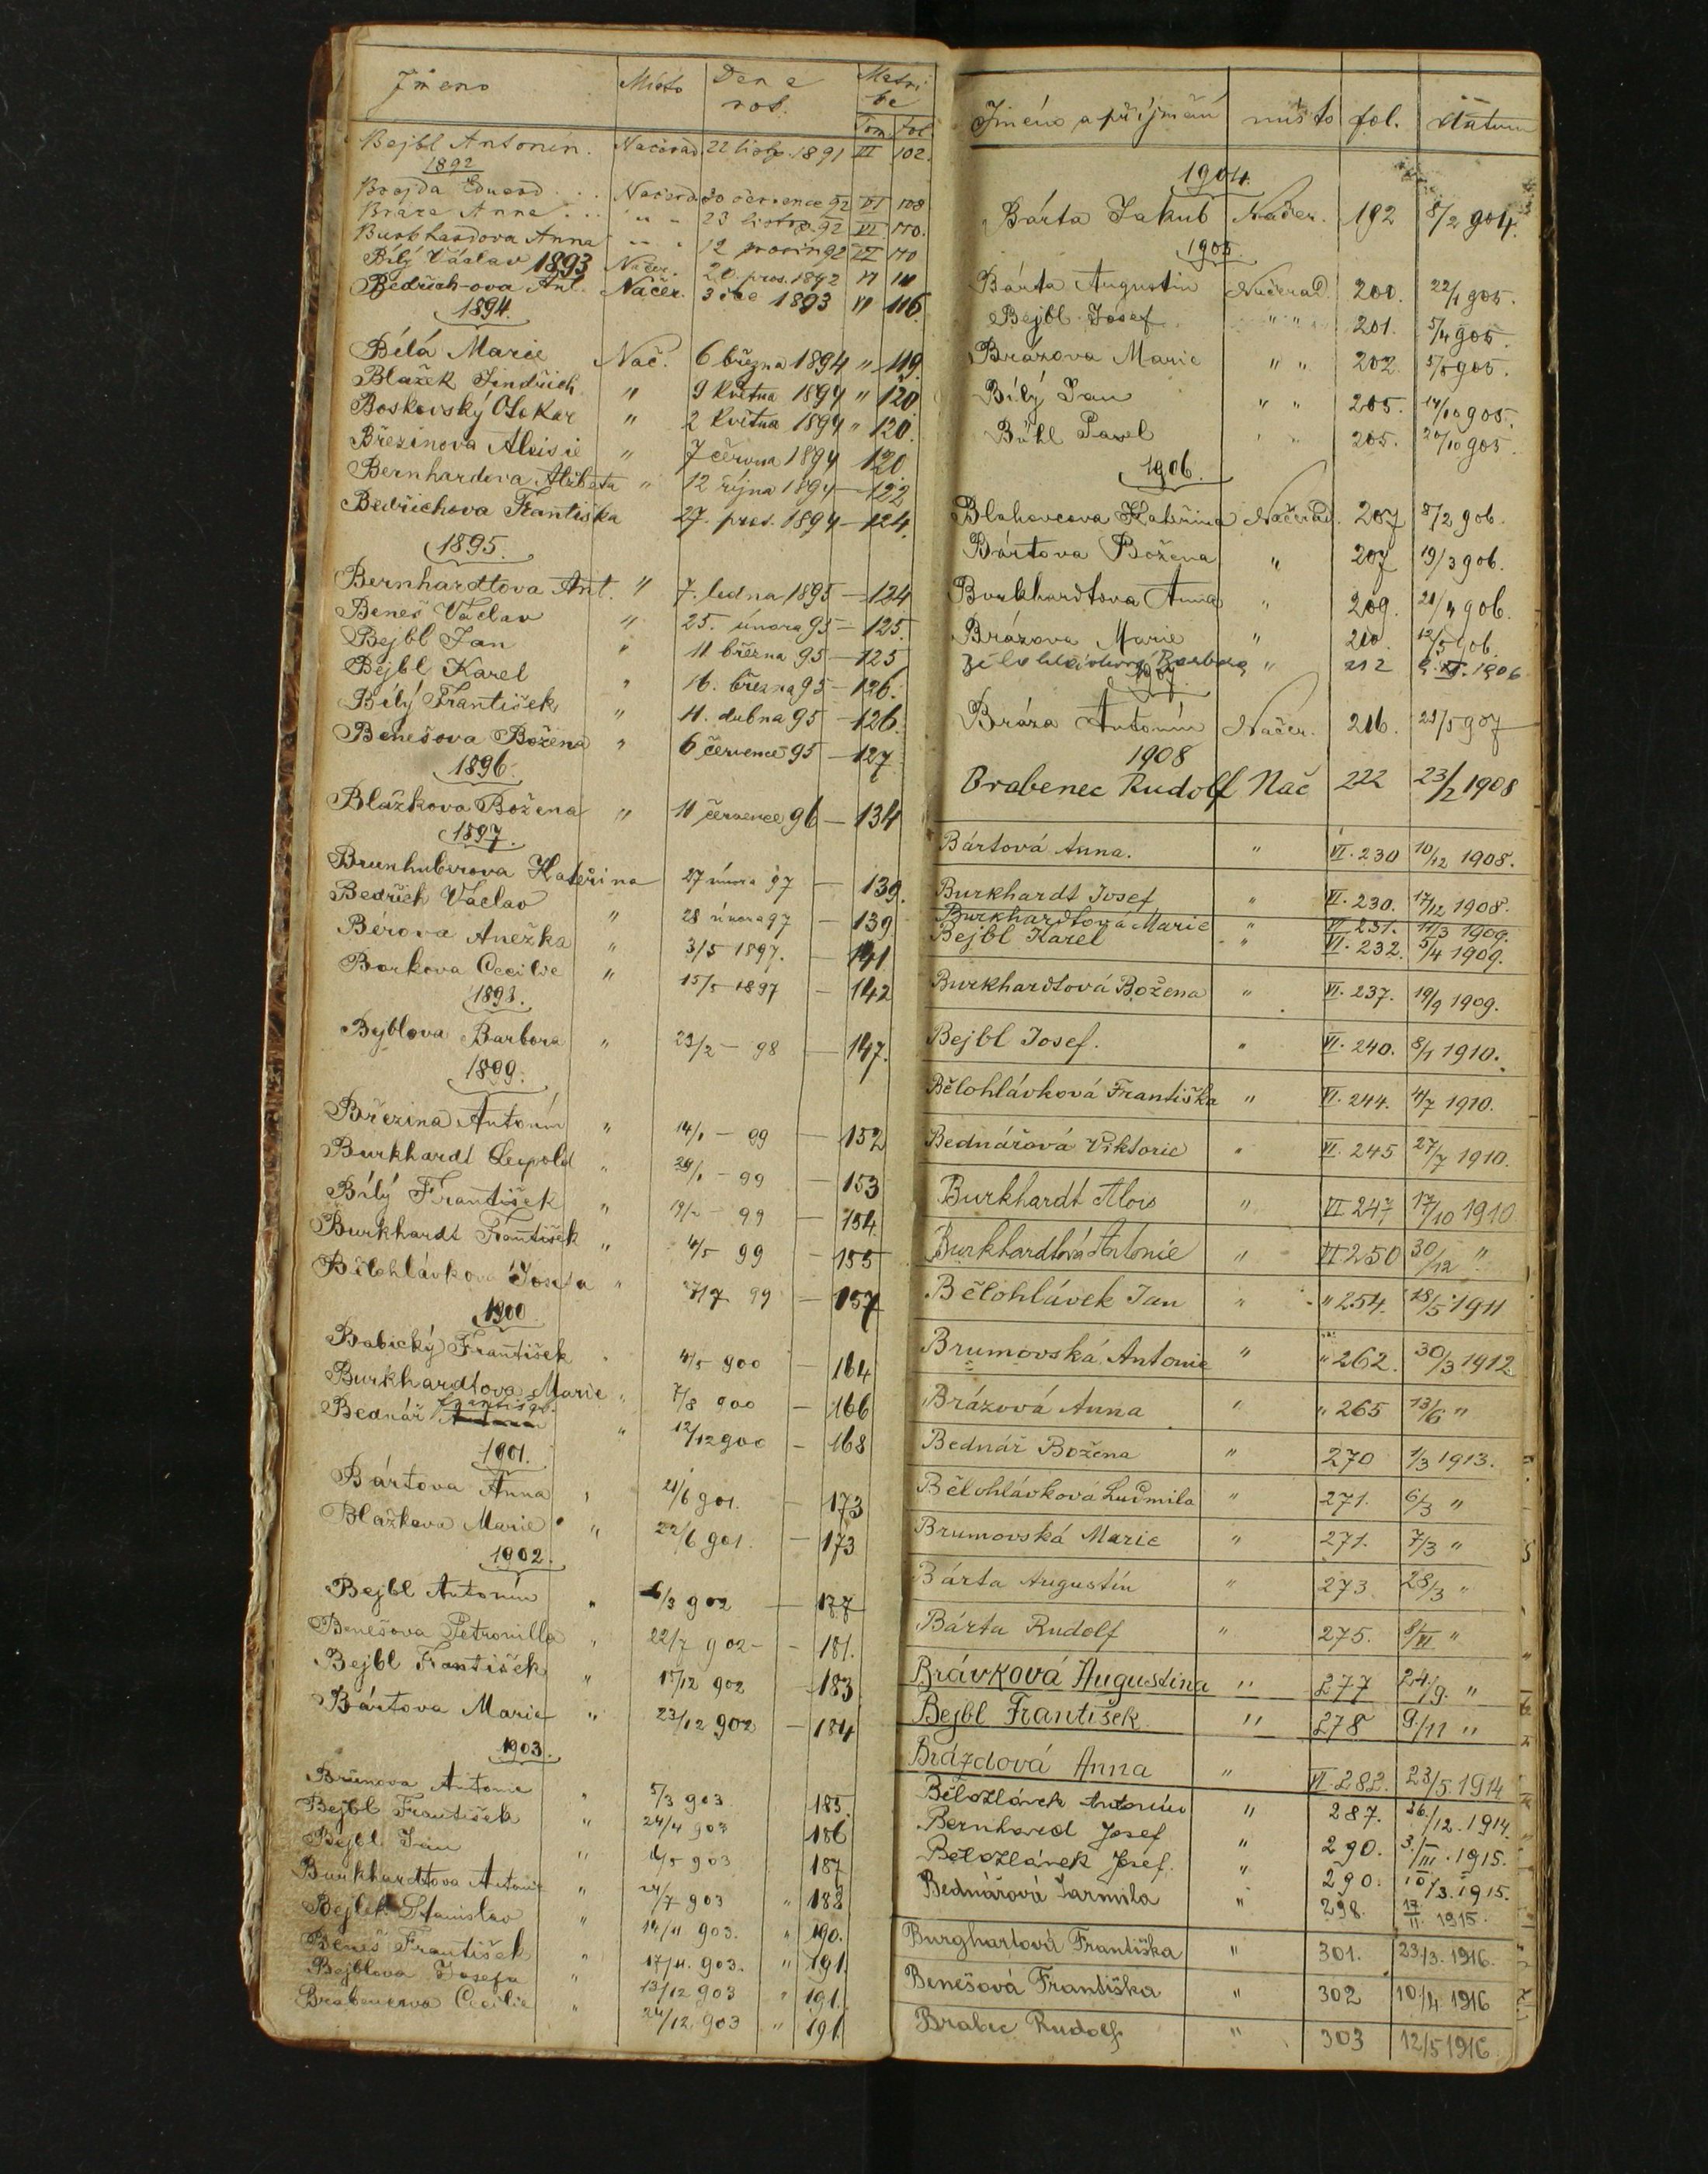 Jméno Místo Den a rok. Matrika
Tom. fol.
Bejbl Antonín. Načerad 22 listp. 1891 VI 102.
1892
Brajda Eduard . . Načerad 30 července 92 VI 108
Bráza Anna . . " " 23 listp. 92 VI 110.
Burkhardova Anna " " 12 prosin 92 VI 110
Bílý Václav Načer. 20. pros. 1892 VI 111
1893
Bedřich-ova Ant. Načer. 3 1893 VI 116.
1894.
Bílá Marie Nač. 6 března 1894 " 119.
Blažek Jindřich " 9 května 1894 " 120
Boskovský Otokar " 2 května 1894 " 120.
Březinova Aloisie " 7 června 1894 120
Bernhardova Alžběta " 12 října 1894 — 122
Bedřichova Františka 27. pros. 1894 — 124.
1895.
Bernhardtova Ant. " 7. ledna 1895 — 124
Beneš Václav " 25. února 95 — 125.
Bejbl Jan " 11 března 95 — 125
Bejbl Karel " 16. března 95 — 126.
Bílý František " 11. dubna 95 — 126.
Benešova Božena " 6 července 95 — 127
1896.
Blážkova Božena " 11 července 96 — 134
1897.
Brunhuberova Kateřina 27 února 97 — 139.
Bedřich Václav " 28 února 97 — 139
Bérova Anežka " 3/5 1897. — 141
Borkova Cecilie " 15/5 1897 — 142
1898.
Bejblova Barbora " 23/2 — 98 — 147.
1899.
Březina Antonín " 14/1 — 99 — 152
Burkhardt Leopold " 29/1 — 99 — 153
Bílý František " 19/2 — 99 — 154.
Burkhardt František " 4/5 99 — 155
Bělohlávkova Josefa " 27/7 99 — 157
1900
Babický František " 4/5 900 — 164
Burkhardtova Marie " 7/8 900 — 166
Bednář František " 12/12 900 — 168
1901.
Bártova Anna " 21/6 901. — 173
Blažkova Marie " 22/6 901. — 173
1902.
Bejbl Antonín " 6/3 902 — 177
Benešova Petronilla " 22/7 902 — 181.
Bejbl František " 17/12 902 — 183
Bártova Marie " 23/12 902 — 184
1903.
Brůnova Antonie " 5/3 903 185.
Bejbl František " 24/4 903 186
Bejbl Jan " 16/5 903 187
Burkhardtova Antonie " 24/7 903 " 188
Bejlek Stanislav " 14/11 903. " 190.
Beneš František " 17/11. 903. " 191.
Bejblova Josefa " 13/12 903 " 191.
Brabencova Cecilie " 24/12 903 " 191.
Jméno a příjmení místo fol. datum
1904.
Bárta Jakub Načer. 192 8/2 904.
1905.
Bárta Augustin Načerad. 200. 22/1 905.
Bejbl Josef " " 201. 5/4 905.
Brázova Marie " " 202. 5/5 905.
Bílý Jan " " 205. 14/10 905.
Bühl Pavel " " 205. 20/10 905.
1906.
Blahovcova Kateřina Načerad. 207 8/2 906.
Bártova Božena " 207 19/3 906.
Burkhardtova Anna " 209. 21/4 906.
Brázova Marie " 210. 12/5 906.
Bělohlávková Barbora " 212 1906
1907.
Bráza Antonín Načer. 216. 23/5 907
1908
Brabenec Rudolf Nač 222 23/2 1908
Bártová Anna. " VI. 230 10/12 1908.
Burkhardt Josef " VI. 230. 17/12 1908.
Burkhardtová Marie " VI 231. 11/3 1909.
Bejbl Karel " VI. 232. 5/4 1909.
Burkhardtová Božena " VI. 237. 19/9 1909.
Bejbl Josef. " VI. 240. 8/1 1910.
Bělohlávková Františka " VI. 244. 4/7 1910.
Bednářová Viktorie " VI. 245 27/7 1910.
Burkhardt Alois " VI 247 17/10 1910
Burkhardtová Antonie " VI 250 30/12 "
Bělohlávek Jan " " 254. 28/5 1911
Brumovská Antonie " " 262. 30/3 1912
Brázová Anna " " 265 13/6 "
Bednář Božena " 270 1/3 1913.
Bělohlávková Ludmila " 271. 6/3 "
Brumovská Marie " 271. 7/3 "
Bárta Augustín " 273 28/3 "
Bárta Rudolf " 275. 8/VI "
Brávková Augustina " 277 24/9. "
Bejbl František " 278 9./11 "
Brázdová Anna " VI. 282. 23/5. 1914
Bělohlávek Antonín " 287. 26./12. 1914.
Bernhard Josef " 290. 3./III. 1915.
Bělohlávek Josef. " 290. 10/3. 1915.
Bednářová Jarmila " 298. 17/11. 1915.
Burghartová Františka " 301. 23/3. 1916.
Benešová Františka " 302 10/4. 1916
Brabec Rudolf " 303 12/5 1916